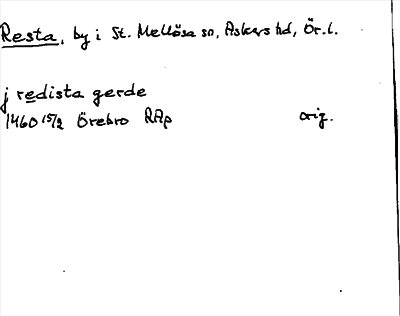 Resta, by i St. Mellösa sn, Askers hd, Ör. l.
j redista gerde
1460 15/2 Örebro RAp orig.